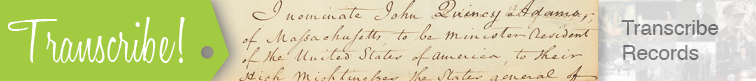 Transcribe!
I nominate John Quincy Adams,
of Massachusetts to be minister resident
of the United States of America, to their
High Mightinesses the States general of
Transcribe
Records